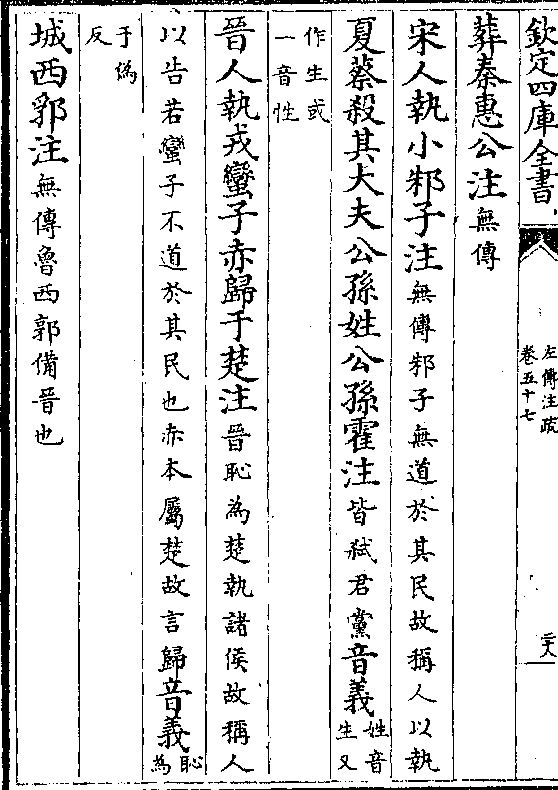 欽定四庫全書
左傳注疏
卷五十七
二八
葬秦惠公注無傳
宋人執小邾子注無傳邾子無道於其民故稱人以執
夏蔡殺其大夫公孫姓公孫霍注皆弑君黨音義姓音
生又
作生或
一音性
晉人執戎蠻子赤歸于楚注晉恥為楚執諸侯故稱人
以告若蠻子不道於其民也赤本屬楚故言歸音義恥
為
于偽
反
城西郛注無傳魯西郭備晉也